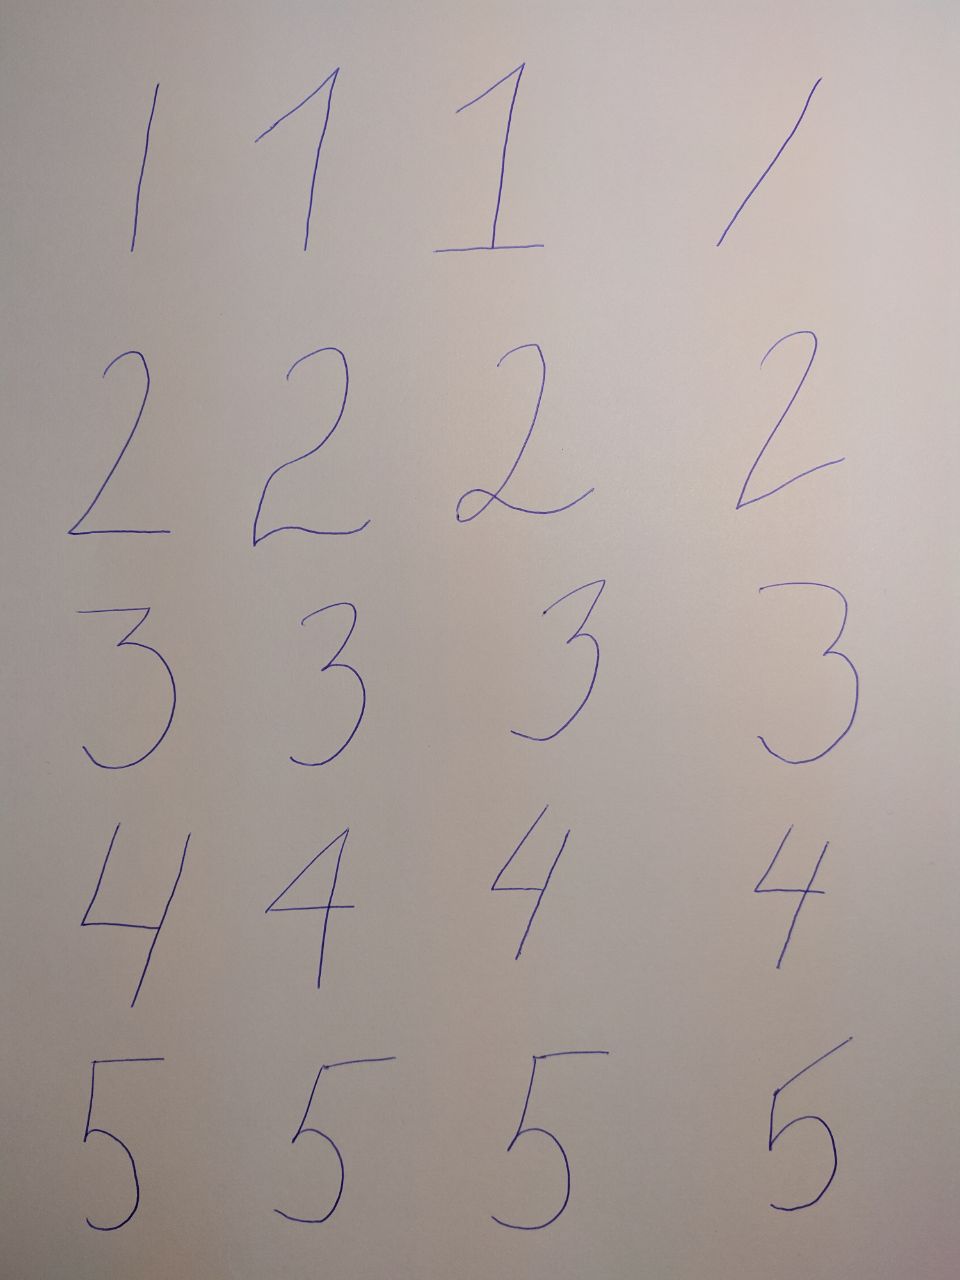 1 1 1 1
2 2 2 2
3 3 3 3
4 4 4 4
5 5 5 5